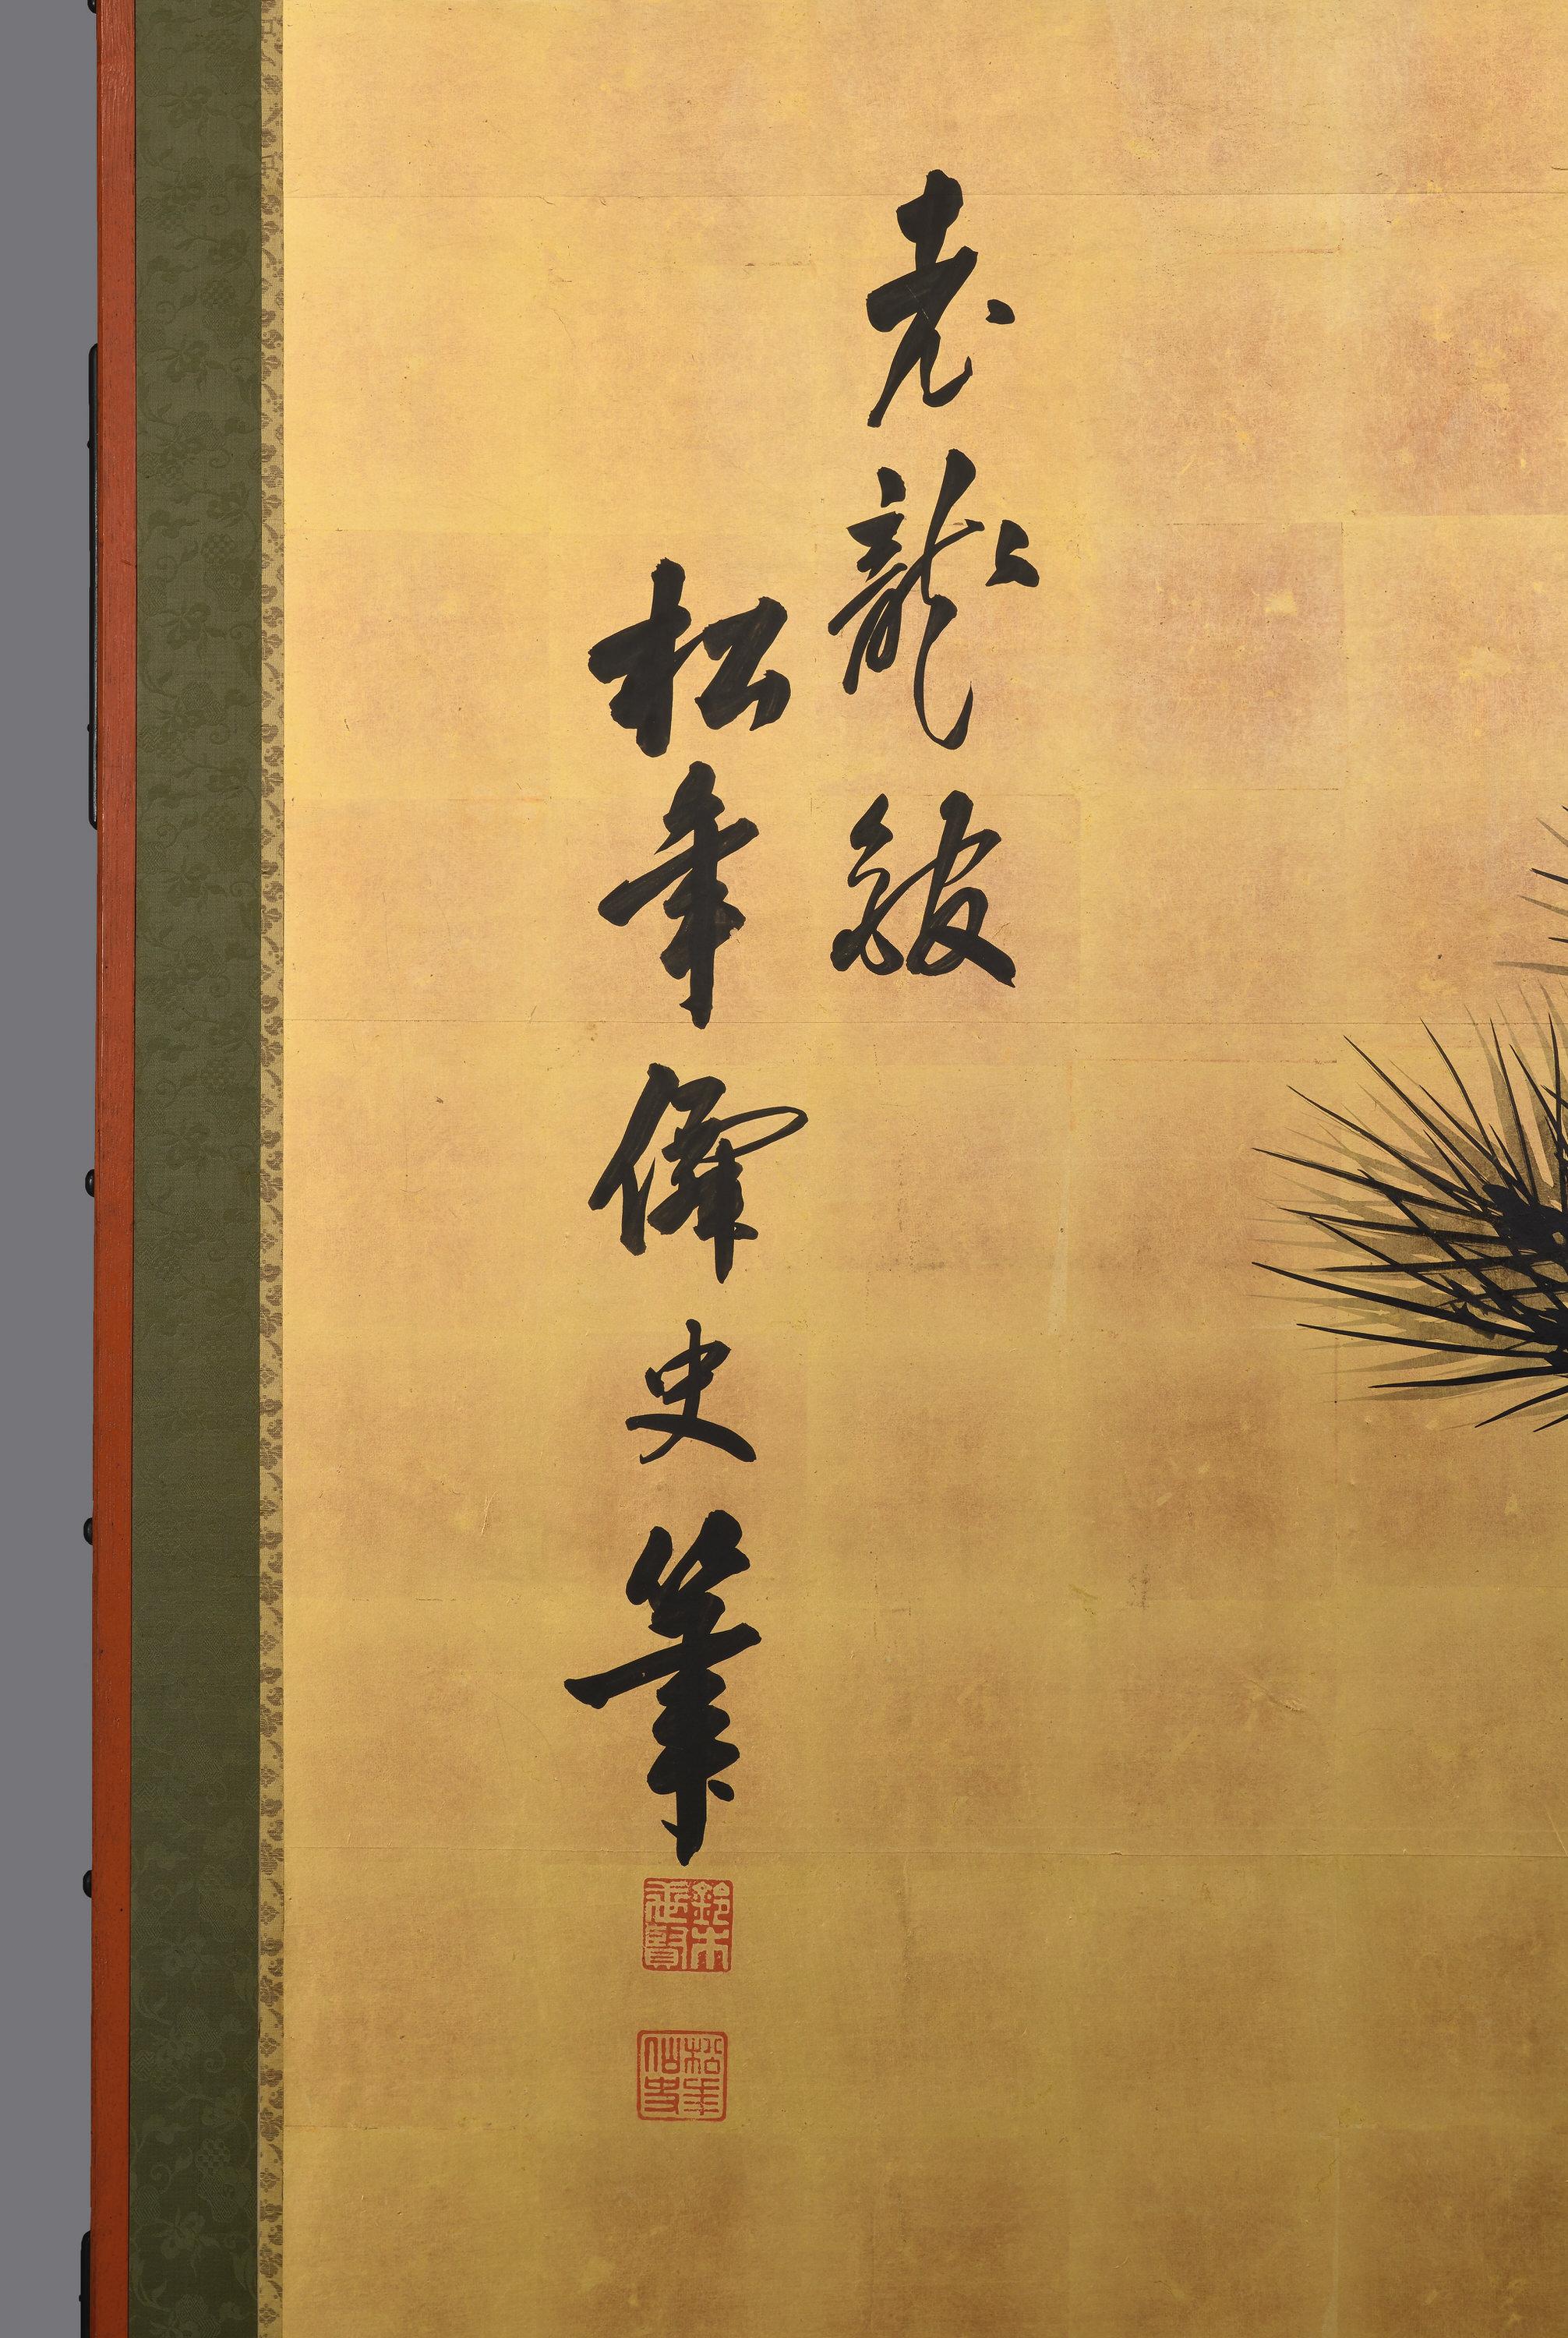 老龍皴
松年僊史筆
鈴木世賢
松年仙史